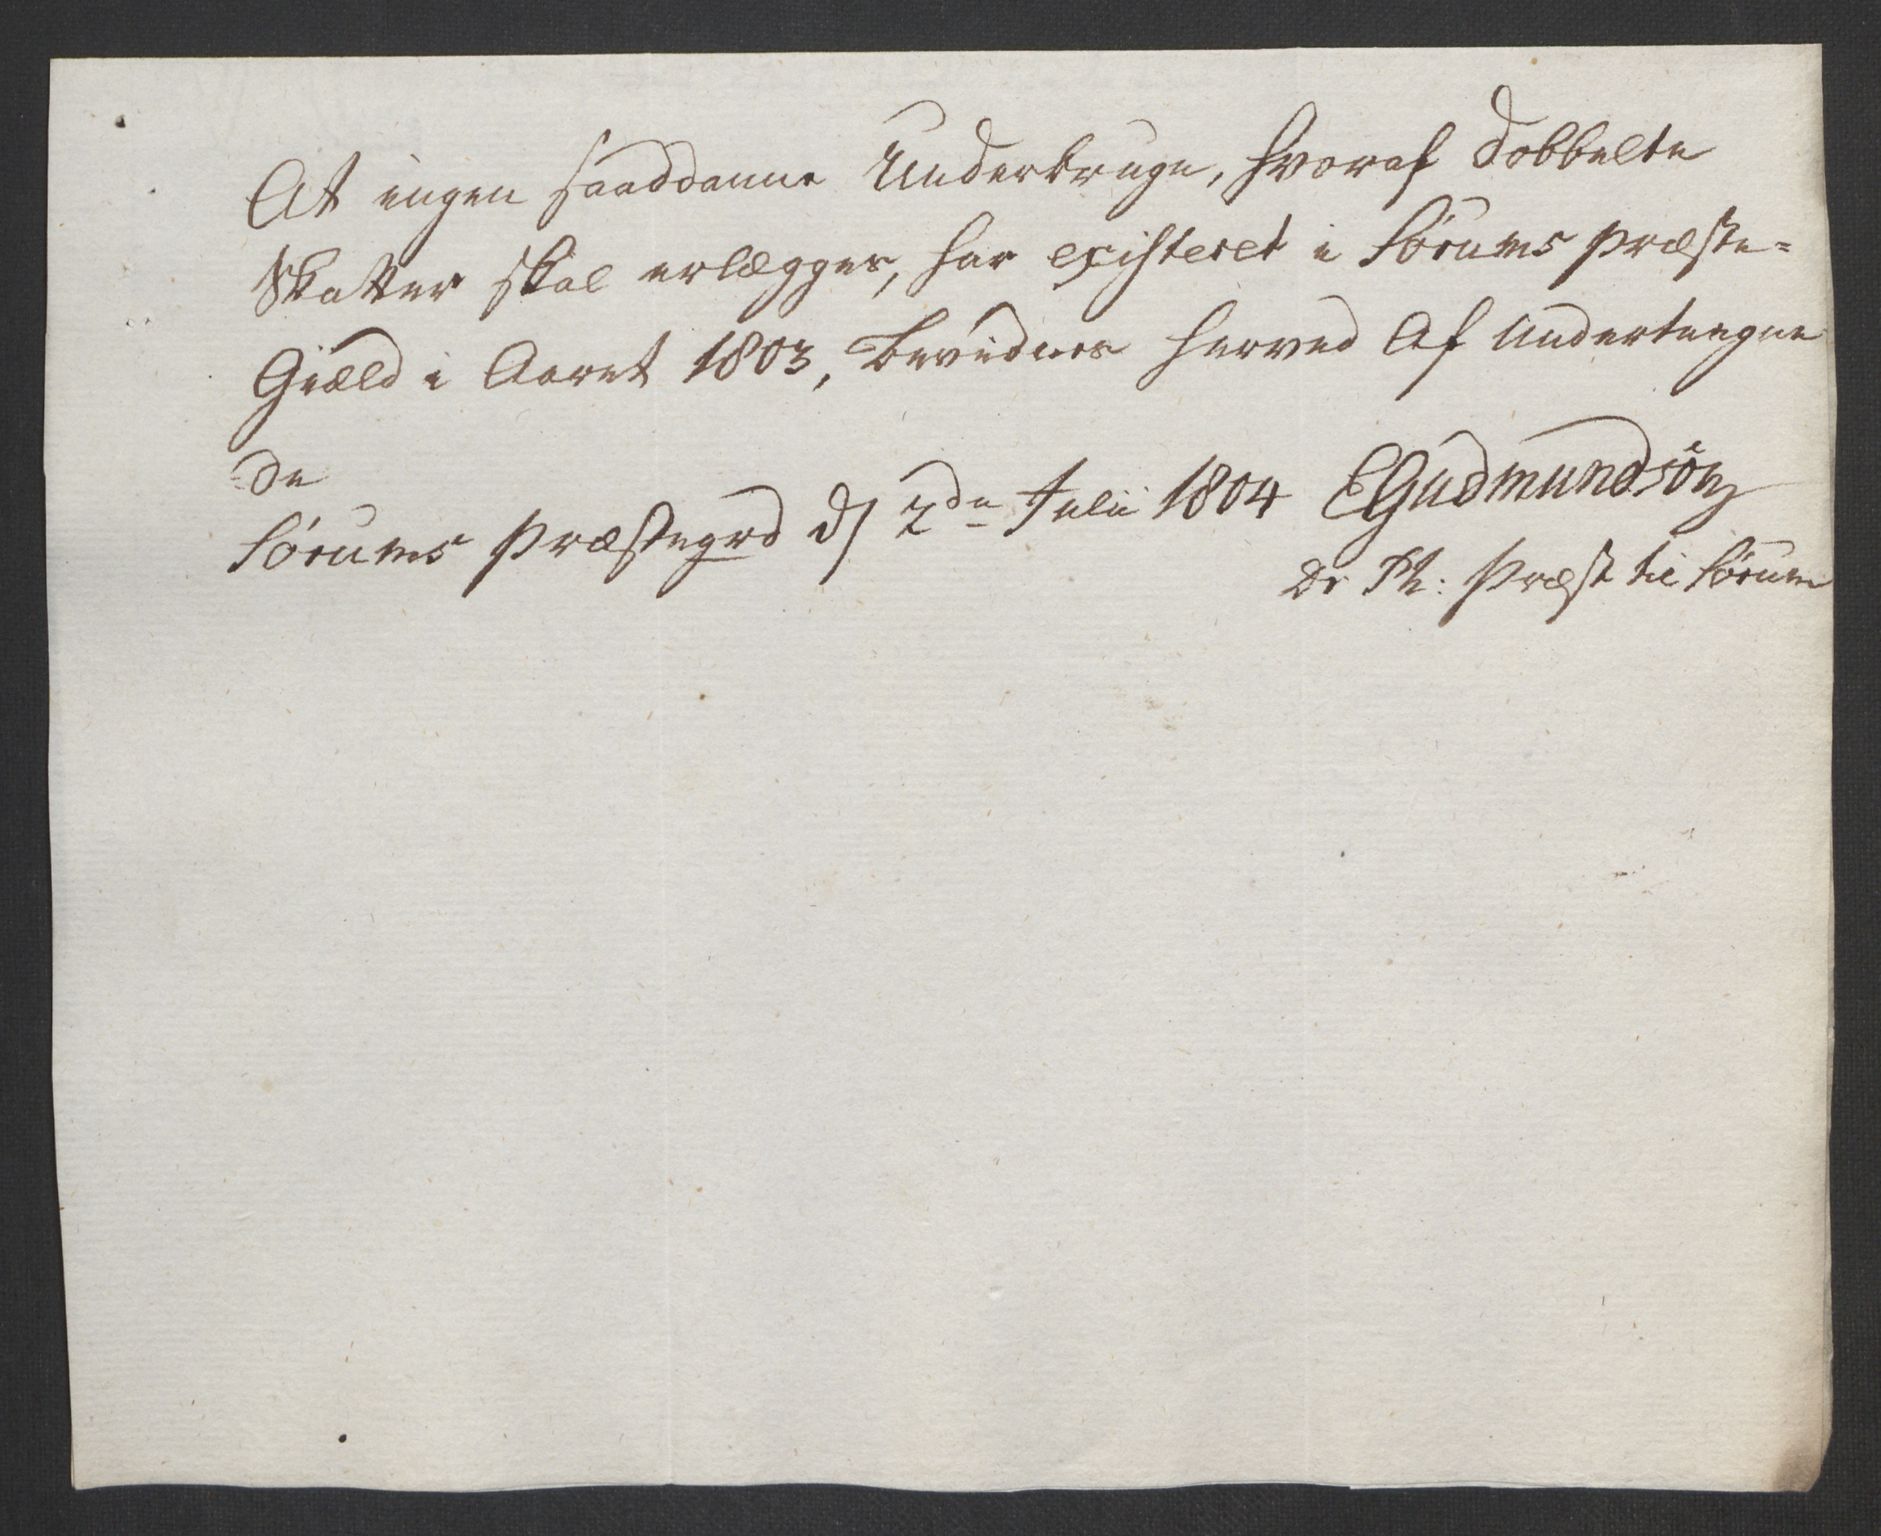 At ingen saaddanne Underbruge, hvoraf dobbelte
Skatter skal erlægges, har existeret i Sørums Præste=
Giæld i Aaret 1803, bevidnes herved Af Undertengne
de
Sørums Præstegrd d 2de Julii 1804 EGudmundsön
Præst til Sørum